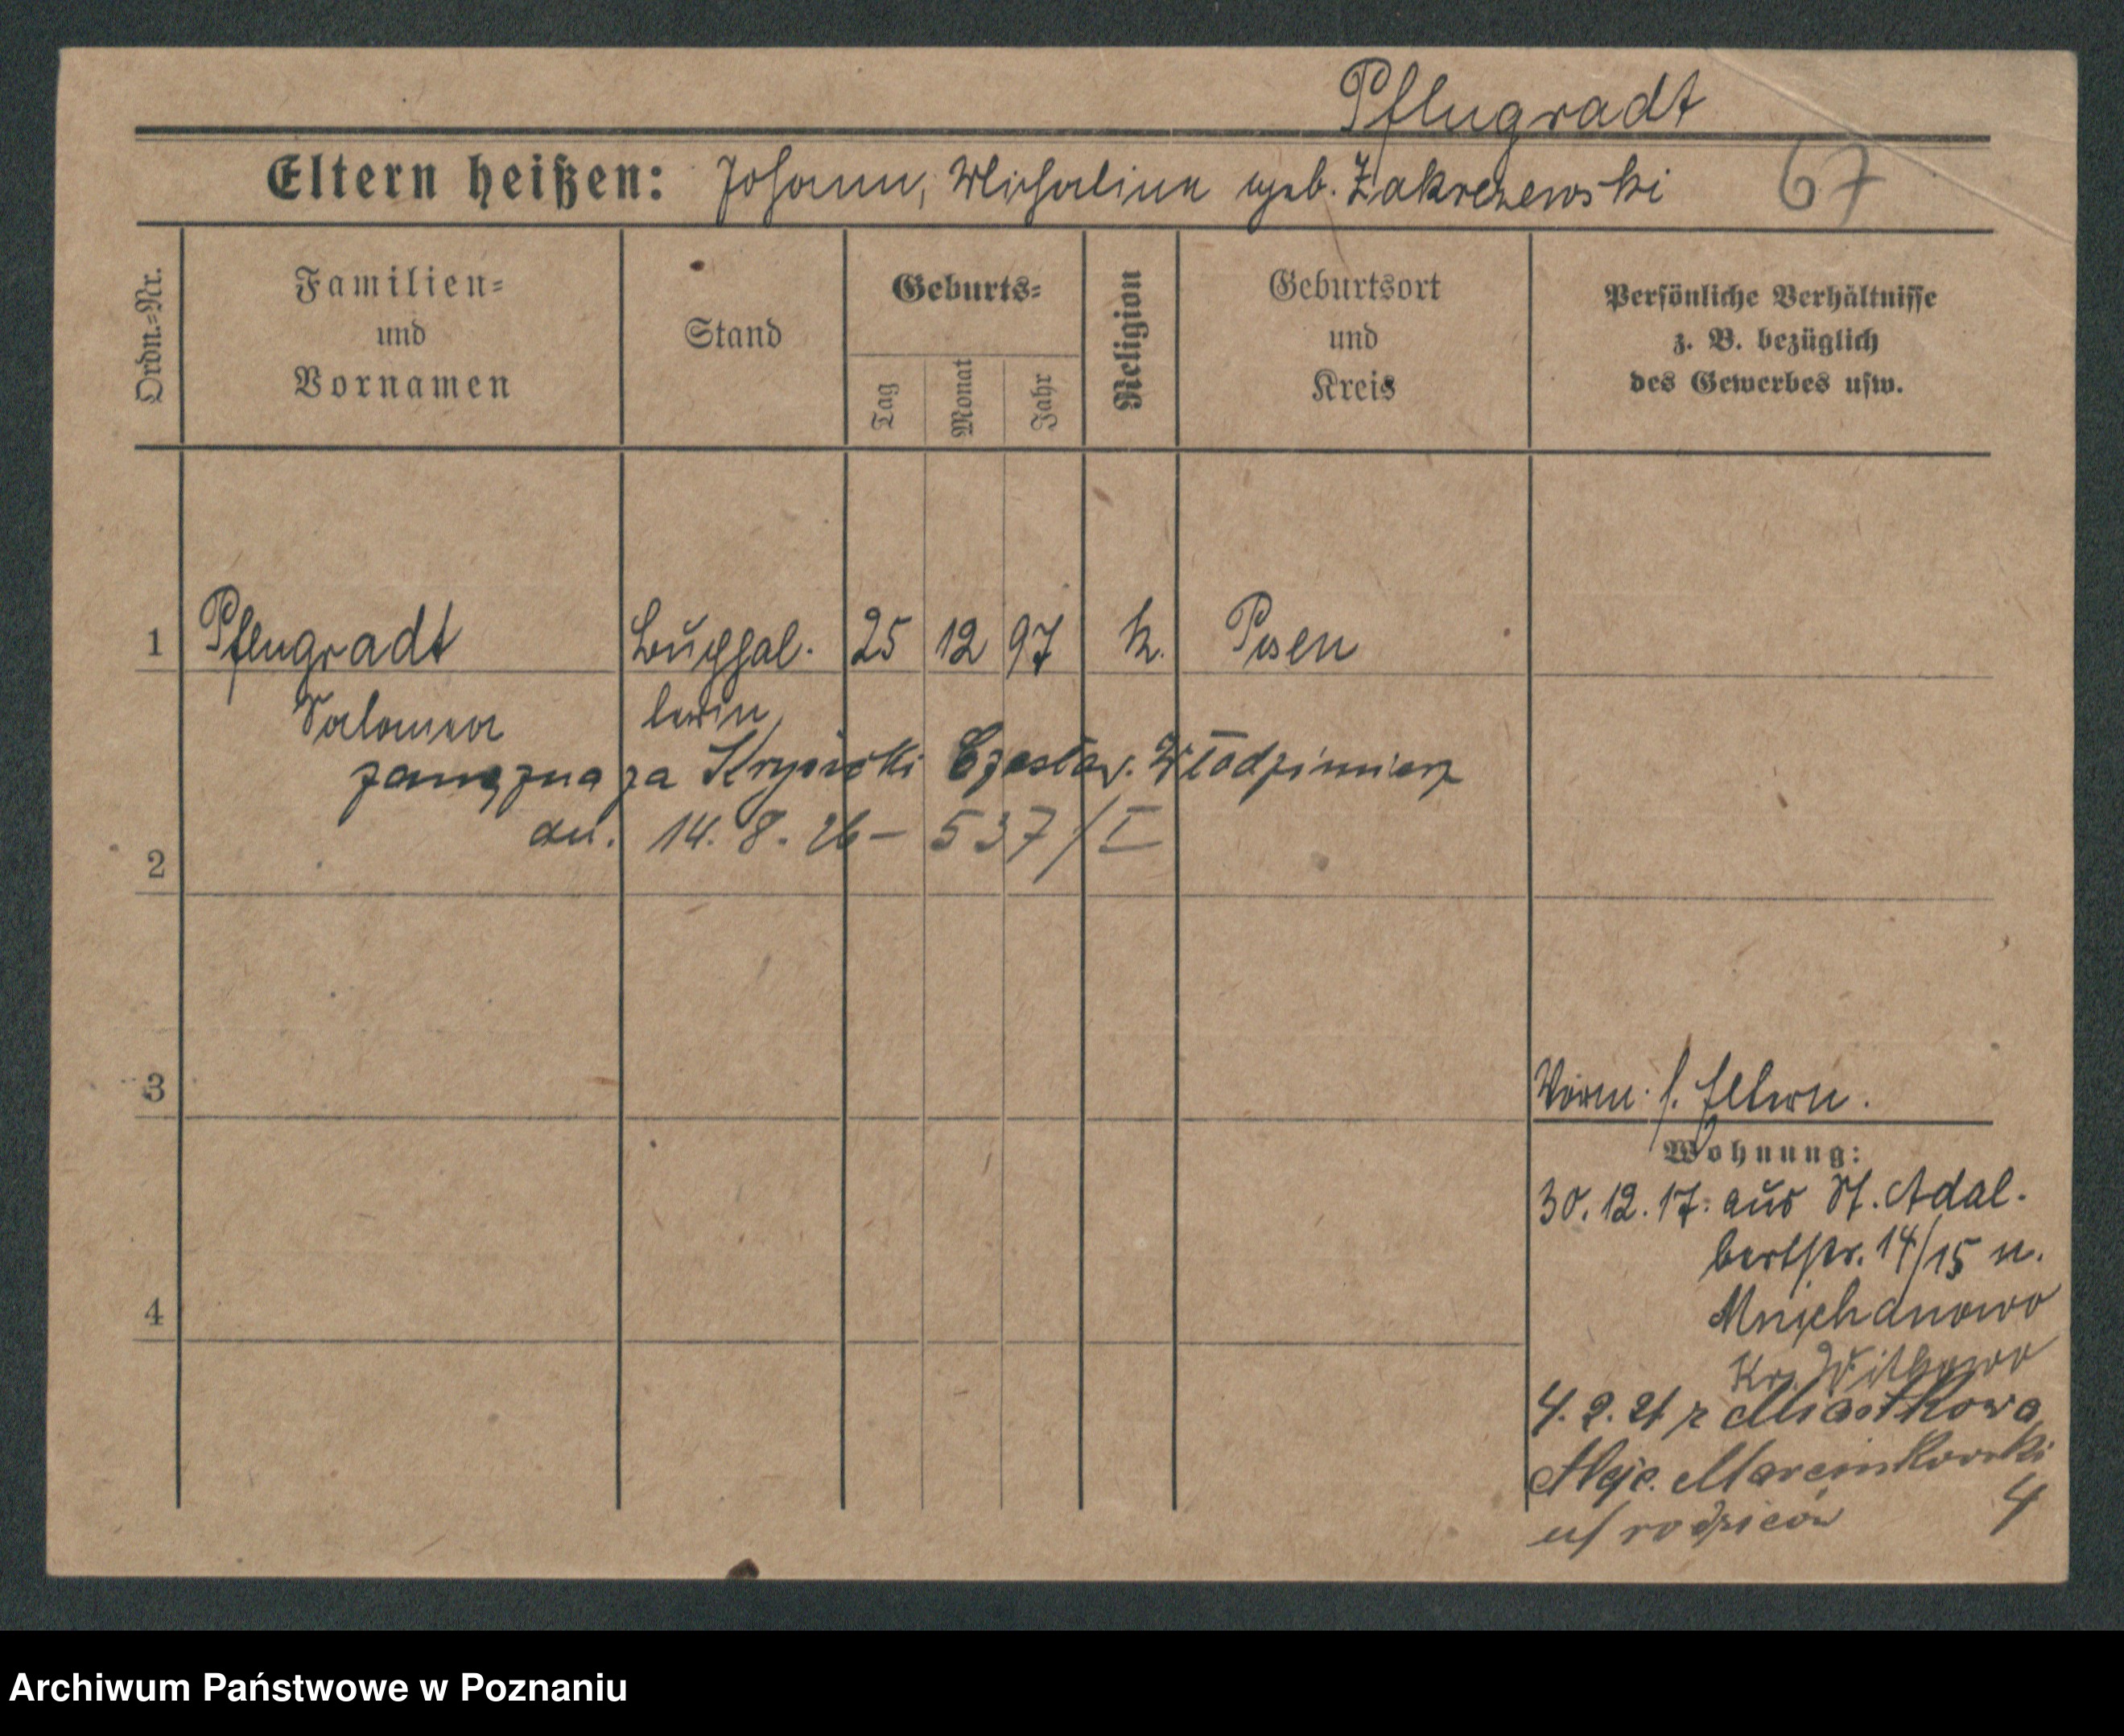 Pflugradt
Eltern heißen: Johann, Michalina geb. Zakrzewski
67
Ordn.-Nr.
Familien-
und
Vornamen
Stand
Geburts-
Tag
Monat
Jahr
Religion
Geburtsort
und
Kreis
Persönliche Verhältnisse
z. B. bezüglich
des Gewerbes usw.
1 Pflugradt Buchhal- 25 12 97 k. Posen
Salomea terin
zamężna za Czesław. Włodzimierz
dn. 14. 8. 26 – 537/I
2
3
4
Worm. s. Eltern.
Wohnung:
30. 12. 17. aus St. Adal-
bertstr. 14/15 n.
Mnichanowo
Kr. Witkowo
4. 2. 21 z Miastkowa
Aleje. Marcinkowski
4
u/ rodziców
Archiwum Państwowe w Poznaniu